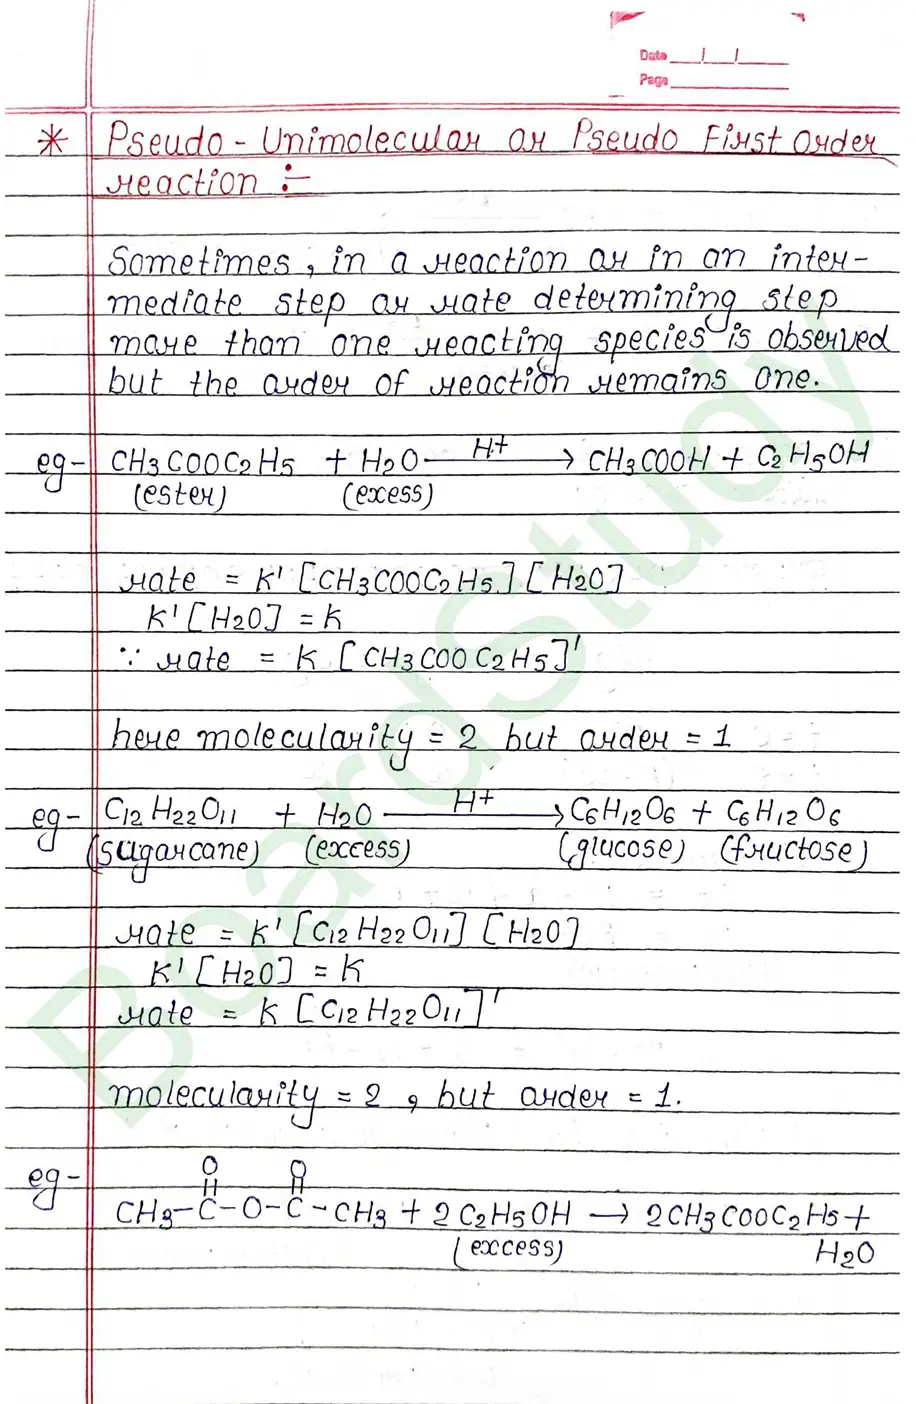 Date
Page
* Pseudo - Unimolecular or Pseudo First order
reaction :-
Sometimes, in a reaction or in an inter-
mediate step or rate determining step
more than one reacting species is observed
but the order of reaction remains one.
eg- CH3COOC2H5 + H2O H+ → CH3COOH + C2H5OH
(ester) (exess)
rate = K' [CH3COOC2H5] [H2O]
K' [H2O] = K
∵ rate = K [CH3COOC2H5]'
here molecularity = 2 but order = 1
eg- C12H22O11 + H2O H+ → C6H12O6 + C6H12O6
(sugarcane) (excess) (glucose) (fructose)
rate = K' [C12H22O11] [H2O]
K' [H2O] = K
rate = K [C12H22O11]'
molecularity = 2, but order = 1.
eg- O O
CH3-C-O-C-CH3 + 2C2H5OH → 2CH3COOC2H5 +
(excess) H2O
BoardStudy